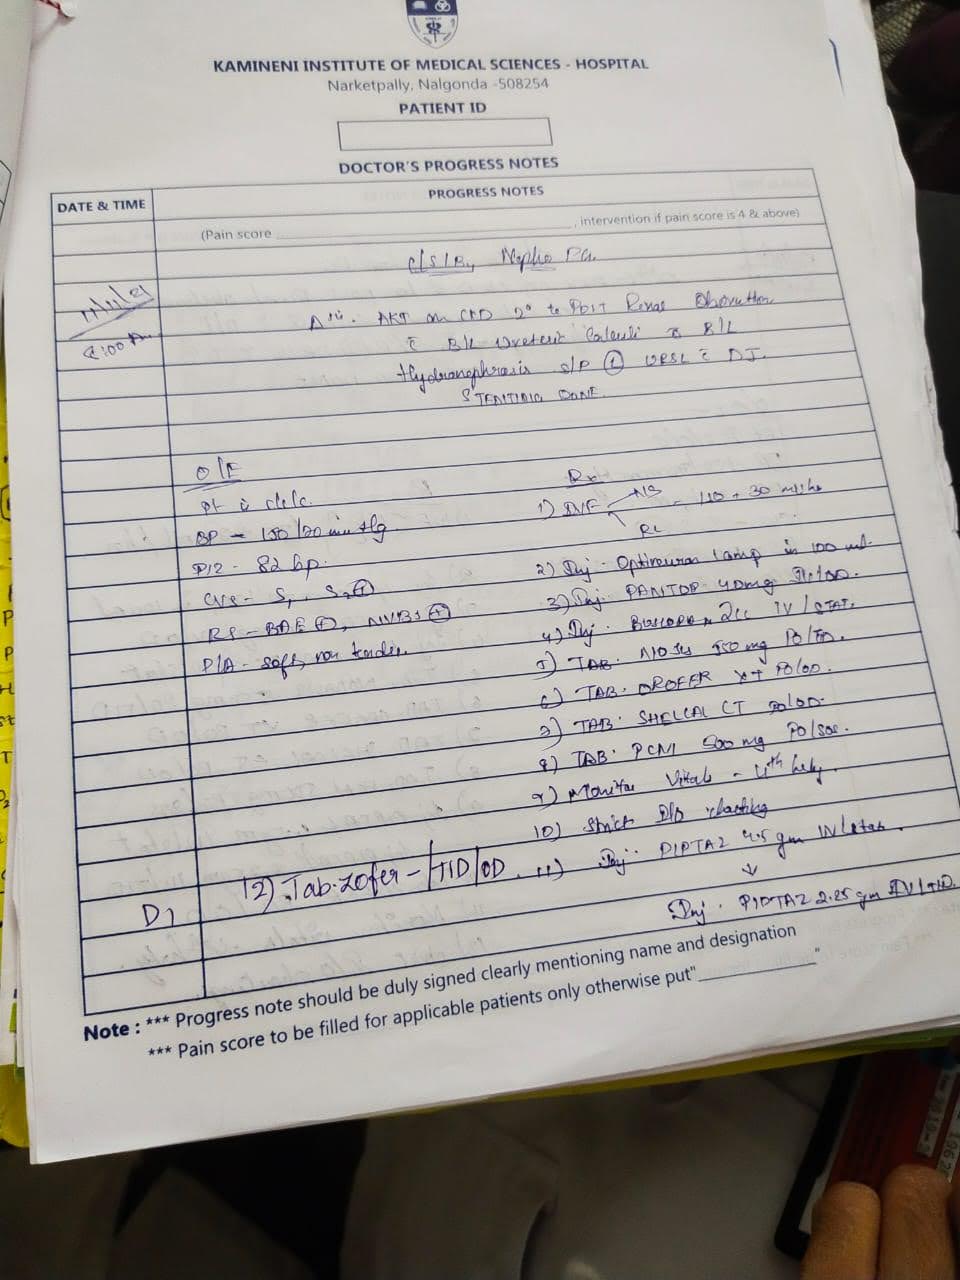 KAMINENI INSTITUTE OF MEDICAL SCIENCES - HOSPITAL
Narketpally, Nalgonda -508254
PATIENT ID
DOCTOR'S PROGRESS NOTES
DATE & TIME
PROGRESS NOTES
(Pain score ____________, intervention if pain score is 4 & above)
C/S/B, Nephro PG.
11/11/21
:00 Pm
AKI on CKD 2° to Post Renal Obstruction
c̄ B/L Ureteric Calculi c̄ B/L
Hydronephrosis s/p L URSL c̄ DJ.
STENTING DONE.
O/E
Pt is c/c/c.
BP - mmHg
PR - 82 bp.
CVS - S1, S2 +
RS - BAE +, NVBS +
P/A - soft, non tender.
Rx
1) IVF NS - + 30 ml/hr
RL
2) Inj. Optineuron 1 amp in 100 ml.
3) Inj. PANTOP 40mg
4) Inj. BUSCOPAN 2cc IV / STAT.
5) TAB. mg PO/
6) TAB. OROFER XT PO/OD.
7) TAB. SHELCAL CT PO/OD.
8) TAB. PCM 500 mg PO/SOS.
9) Monitor Vitals - 4th hrly.
10) Strict I/O charting
11) Inj. PIPTAZ 4.5 gm IV/stat.
↓
Inj. PIPTAZ 2.25 gm IV/TID.
D1
12) Tab. Zofer - /TID/OD.
Note : *** Progress note should be duly signed clearly mentioning name and designation
*** Pain score to be filled for applicable patients only otherwise put"____________"